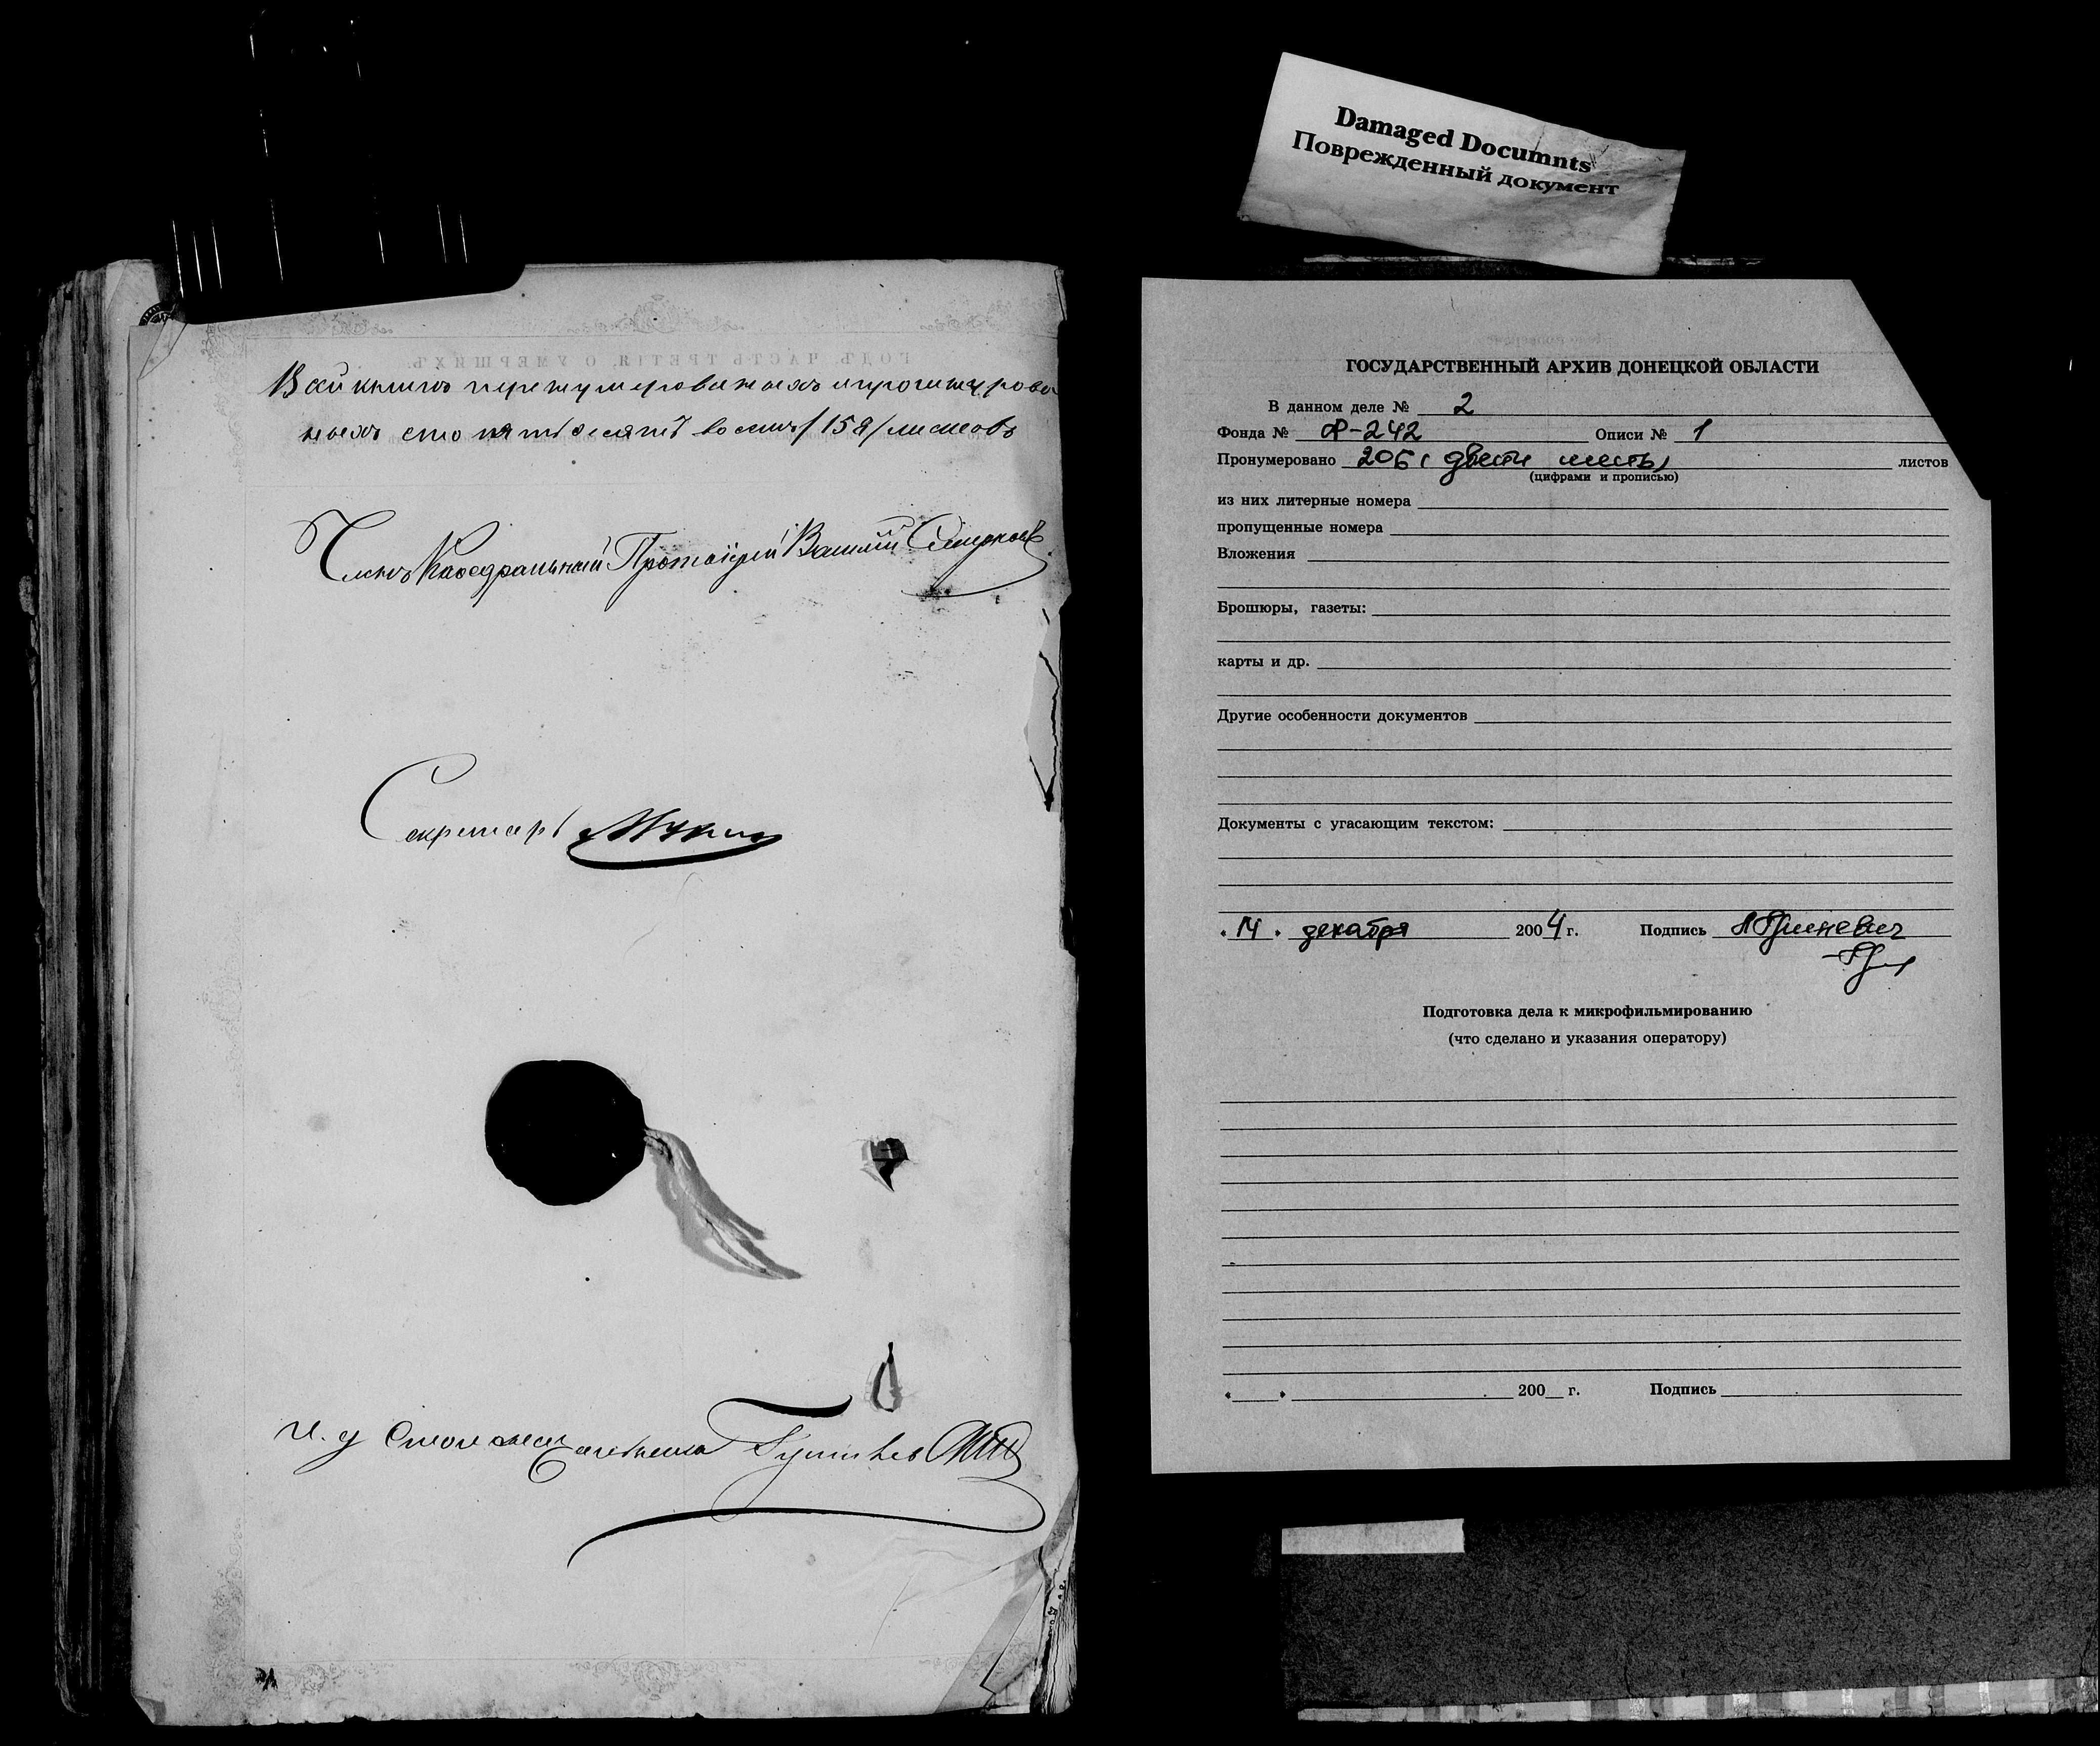 Всей книги перенумерованныхъ и прошнурован
ныхъ сто пятьдесятъ восемь /158/ листовъ
Членъ Кафедральный Протоіерей Василій
Секретарь
И. д. Столоначальника
Damaged Documnts
Поврежденный документ
ГОСУДАРСТВЕННЫЙ АРХИВ ДОНЕЦКОЙ ОБЛАСТИ
В данном деле № 2
Фонда № Ф-242 Описи № 1
Пронумеровано 206 (двести шесть) листов
(цифрами и прописью)
из них литерные номера
пропущенные номера
Вложения
Брошюры, газеты:
карты и др.
Другие особенности документов
Документы с угасающим текстом:
"14" декабря 2004 г. Подпись
Подготовка дела к микрофильмированию
(что сделано и указания оператору)
" " 200 г. Подпись